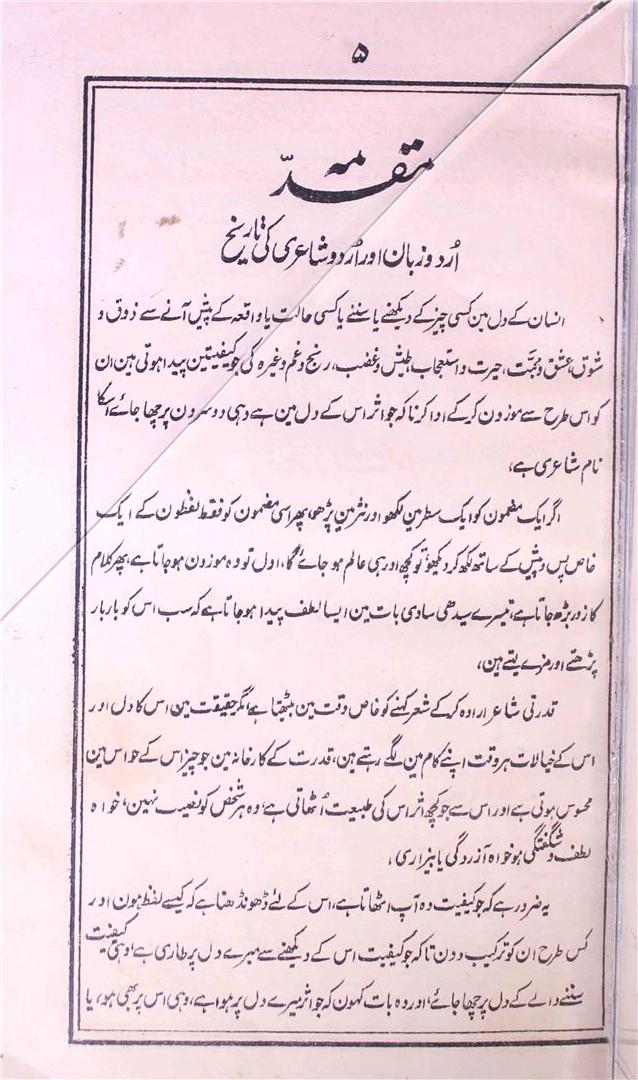 ۵
مقدمہ
اُردو زبان اور اُردو شاعری کی تاریخ
انسان کے دل مین کسی چیز کے دیکھنے یا سننے یا کسی حالت یا واقعہ کے پیش آنے سے ذوق و
شوق، عشق و محبّت، حیرت و استعجاب، طیش و غضب، رنج و غم وغیرہ کی جو کیفیتین پیدا ہوتی ہین ان
کو اس طرح سے موزون کر کے ادا کرنا کہ جو اثر اس کے دل مین ہے وہی دوسرون پر چھا جائے اسکا
نام شاعری ہے،
اگر ایک مضمون کو ایک سطر مین لکھو اور نثر مین پڑھو، پھر اسی مضمون کو فقط لفظون کے ایک
خاص پس و پیش کے ساتھ لکھ کر دیکھو تو کچھ اور ہی عالم ہو جائے گا، اول تو وہ موزون ہو جاتا ہے، پھر کلام
کا زور بڑھ جاتا ہے، تیسرے سیدھی سادی بات مین ایسا لطف پیدا ہو جاتا ہے کہ سب اس کو بار بار
پڑھتے اور مزے لیتے ہین،
قدرتی شاعر ارادہ کر کے شعر کہنے کو خاص وقت مین بیٹھتا ہے، مگر حقیقت مین اس کا دل اور
اس کے خیالات ہر وقت اپنے کام مین لگے رہتے ہین، قدرت کے کارخانہ مین جو چیز اس کے حواس مین
محسوس ہوتی ہے اور اس سے جو کچھ اثر اس کی طبیعت اُٹھاتی ہے، وہ ہر شخص کو نصیب نہین، خواہ
لطف و شگفتگی ہو خواہ آزردگی یا بیزاری،
یہ ضرور ہے کہ جو کیفیت وہ آپ اٹھاتا ہے، اس کے لئے ڈھونڈھتا ہے کہ کیسے لفظ ہون اور
کس طرح ان کو ترکیب دون تاکہ جو کیفیت اس کے دیکھنے سے میرے دل پر طاری ہے، وہی کیفیت
سننے والے کے دل پر چھا جائے، اور وہ بات کہون کہ جو اثر میرے دل پر ہوا ہے، وہی اس پر بھی ہو، یا